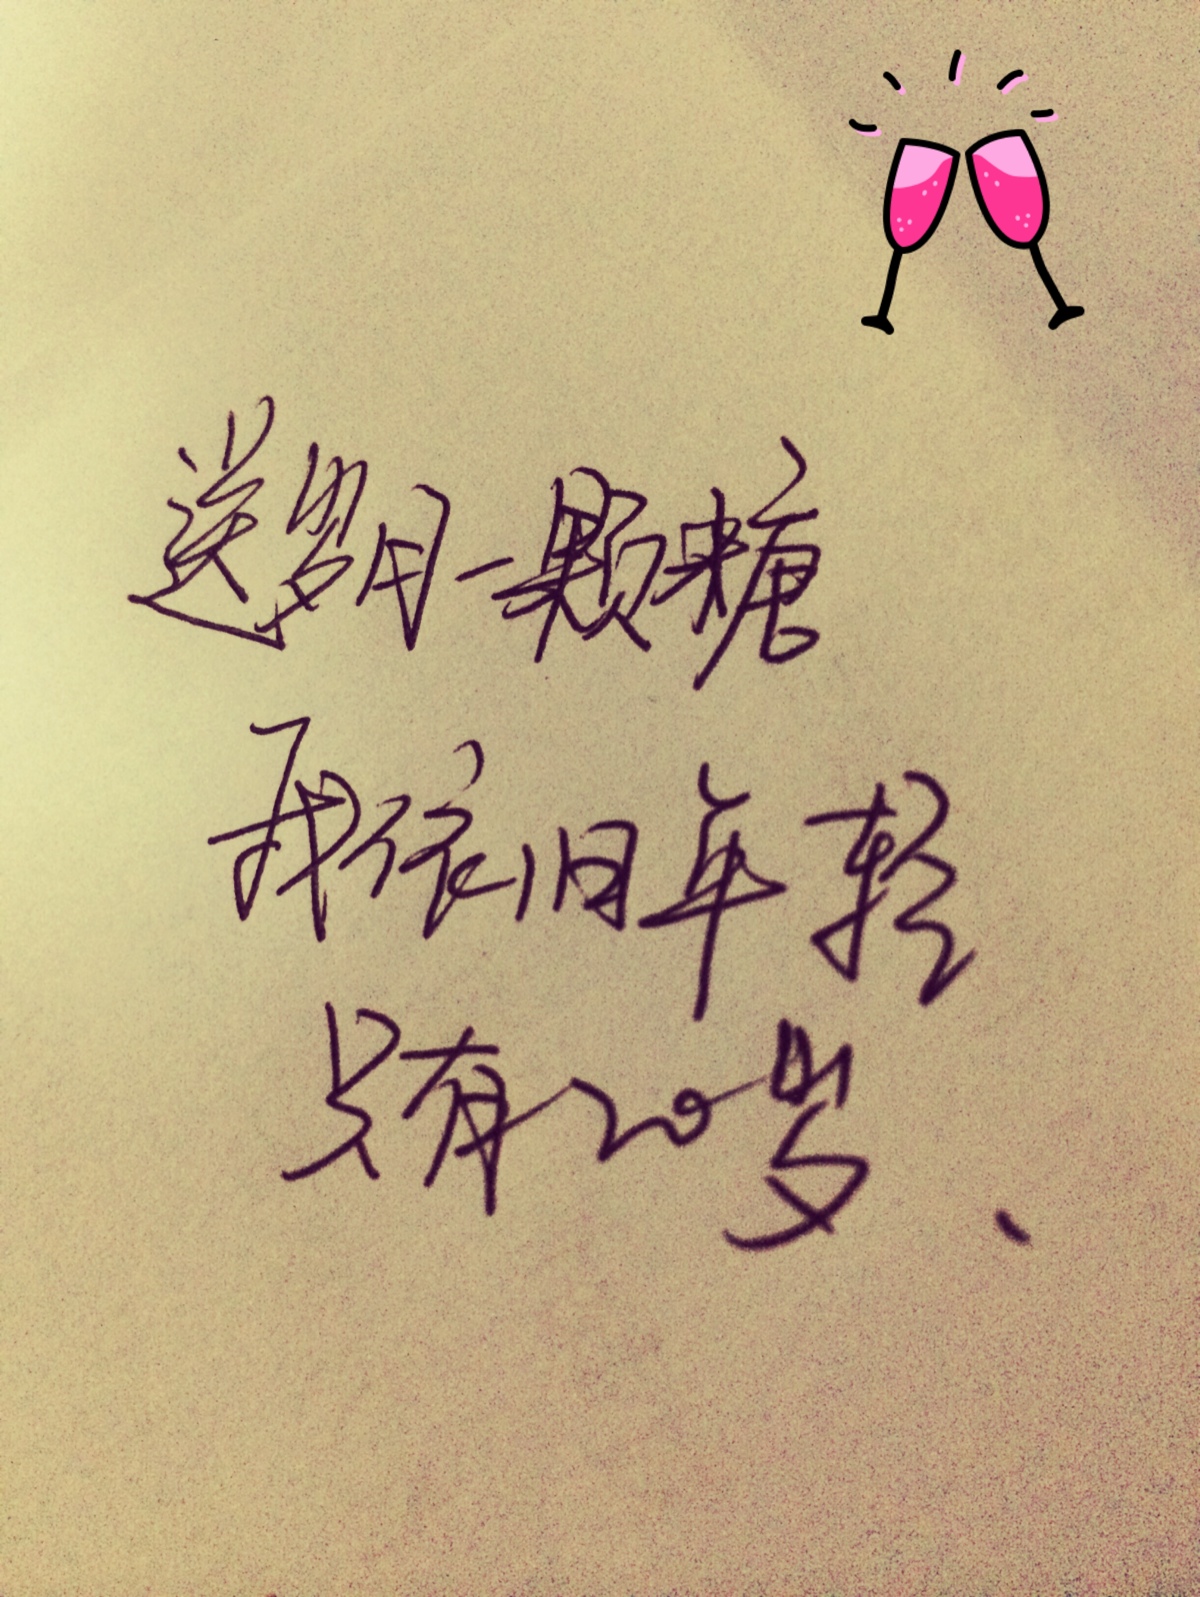 送岁月一颗糖
我依旧年轻
只有20岁、